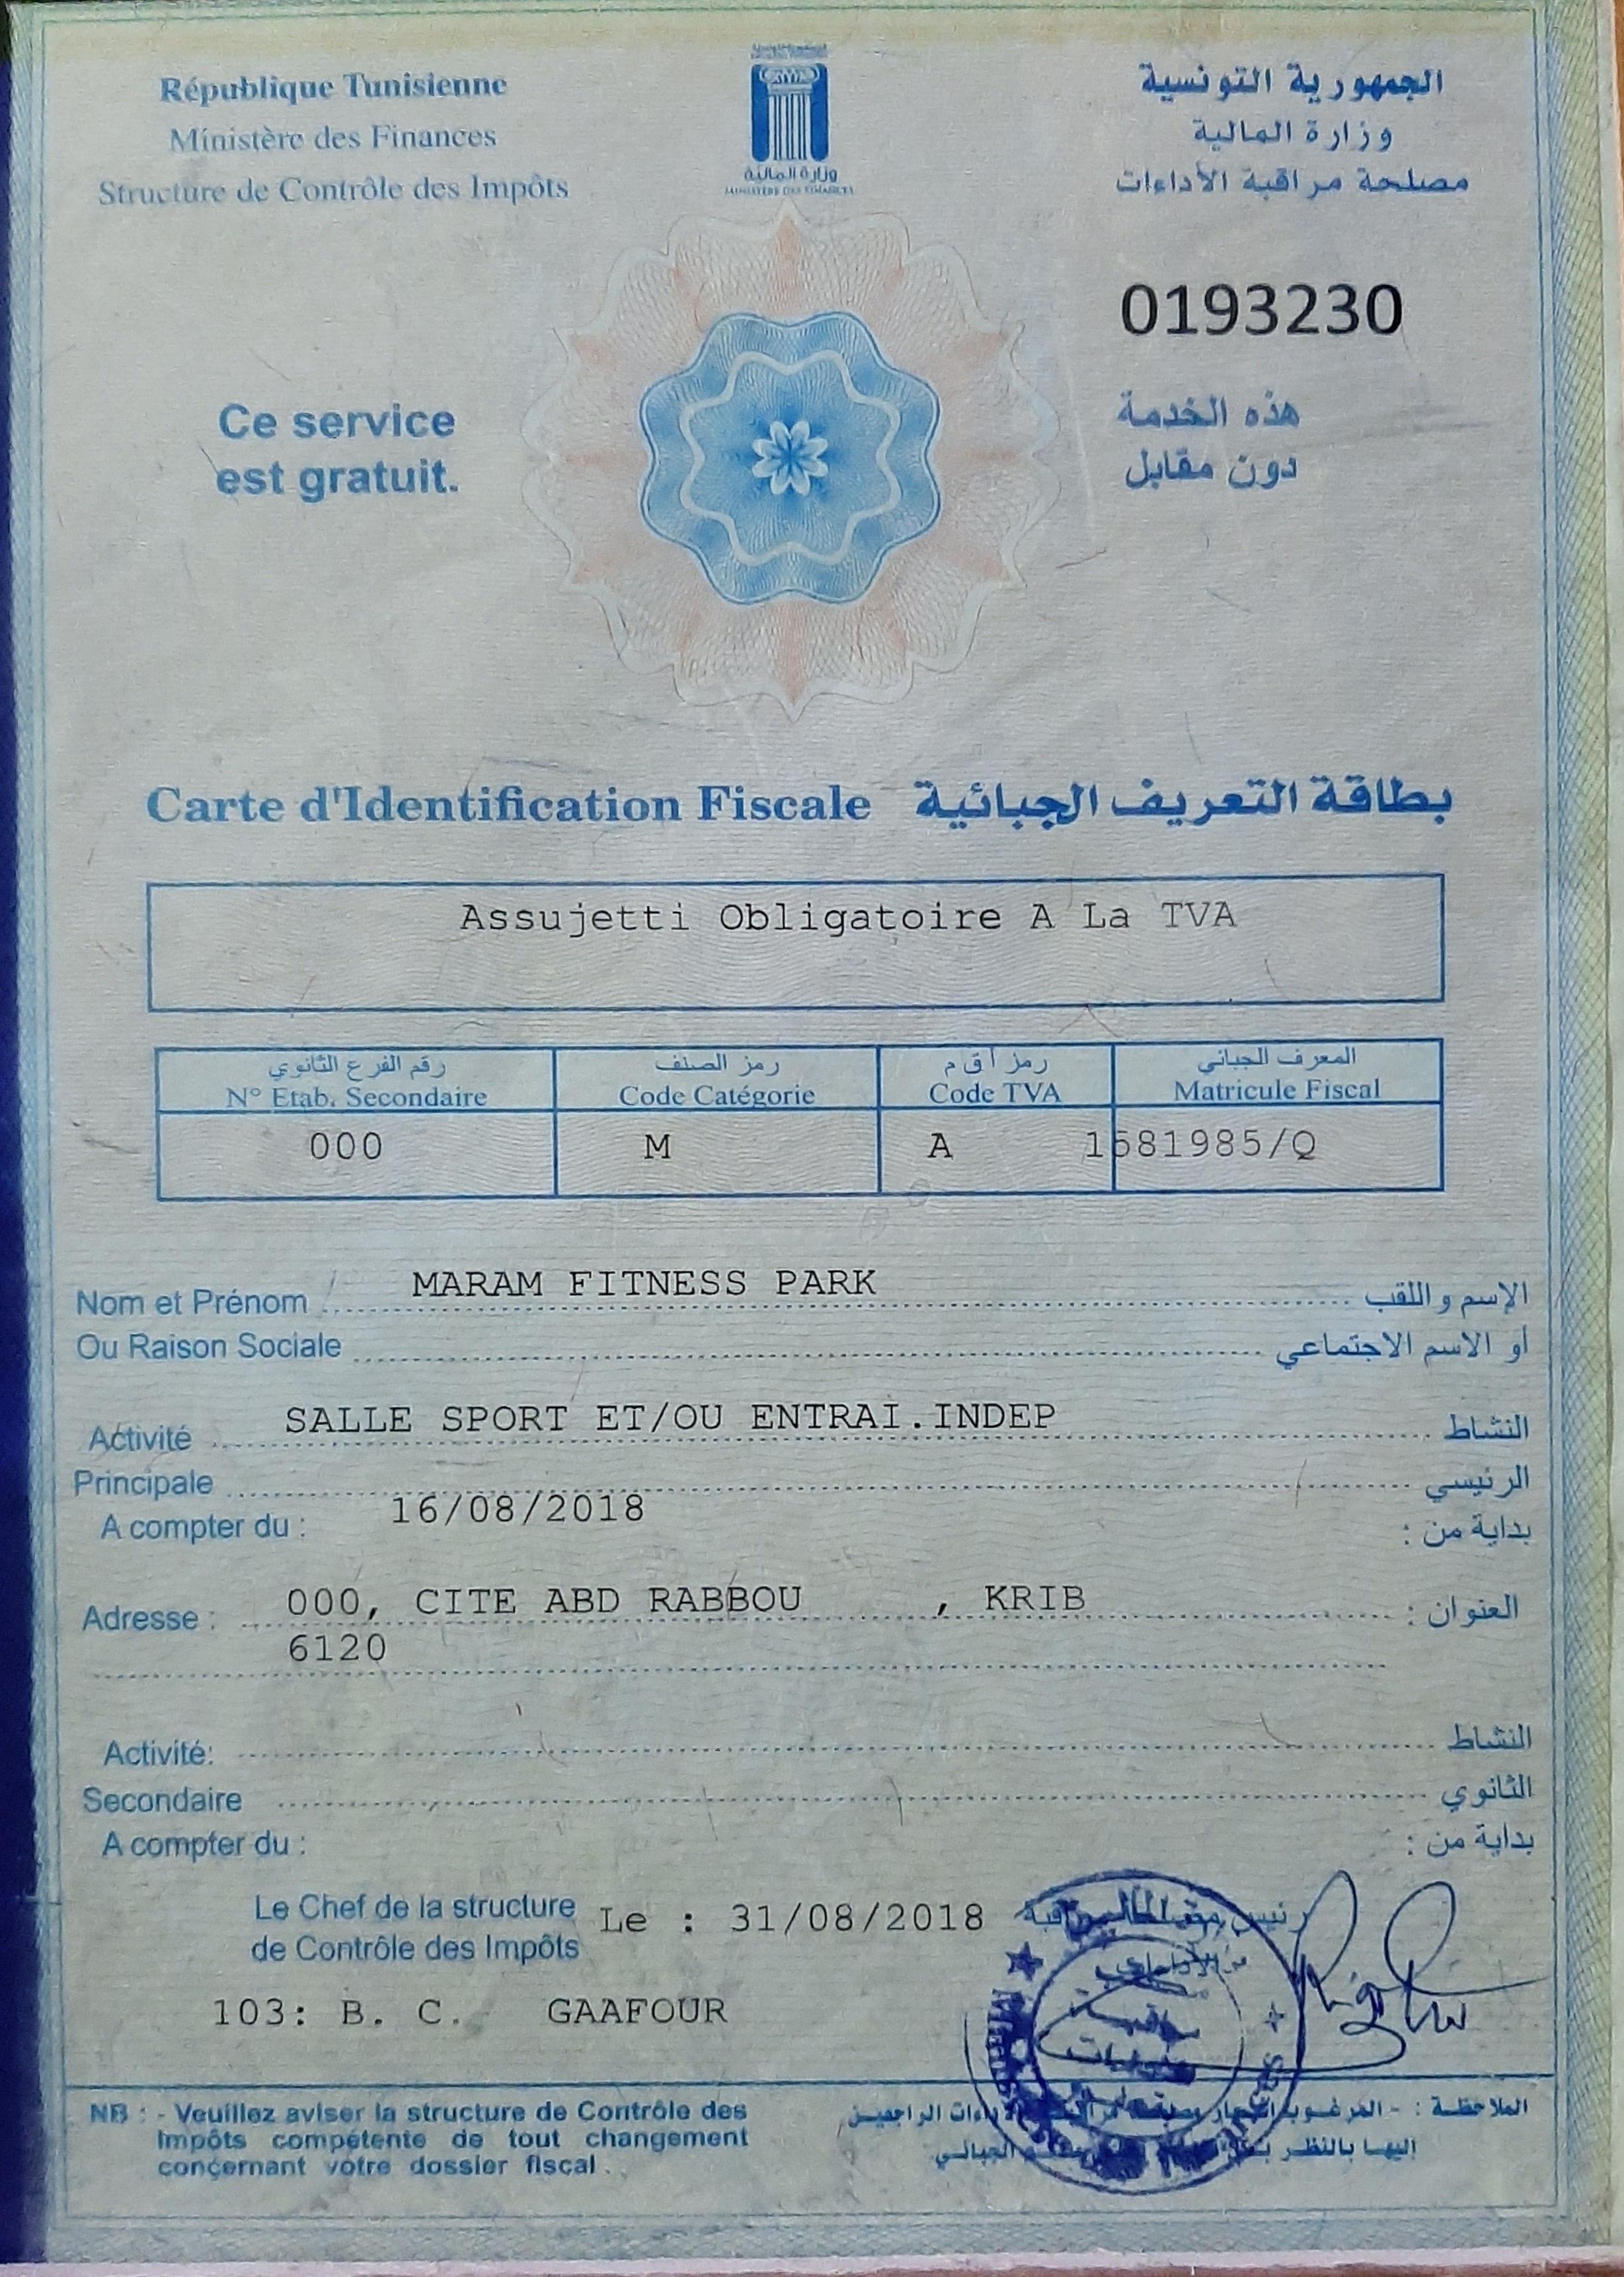 République Tunisienne
Ministère des Finances
Structure de Contrôle des Impôts
وزارة المالية
MINISTERE DES FINANCES
الجمهورية التونسية
وزارة المالية
مصلحة مراقبة الأداءات
0193230
Ce service
est gratuit.
هذه الخدمة
دون مقابل
Carte d'Identification Fiscale بطاقة التعريف الجبائية
Assujetti Obligatoire A La TVA
رقم الفرع الثانوي رمز الصنف رمز أ ق م المعرف الجبائي
N° Etab. Secondaire Code Catégorie Code TVA Matricule Fiscal
000 M A 1681985/Q
Nom et Prénom MARAM FITNESS PARK الإسم و اللقب
Ou Raison Sociale أو الاسم الاجتماعي
Activité SALLE SPORT ET/OU ENTRAI.INDEP النشاط
Principale الرئيسي
A compter du : 16/08/2018 بداية من :
Adresse : 000, CITE ABD RABBOU , KRIB العنوان :
6120
Activité: النشاط
Secondaire الثانوي
A compter du : بداية من :
Le Chef de la structure Le : 31/08/2018 رئيس
de Contrôle des Impôts
103: B. C. GAAFOUR
NB : - Veuillez aviser la structure de Contrôle des
Impôts compétente de tout changement
concernant votre dossier fiscal .
الملاحظة : - المرغوب الراجعين
إليها بالنظر الجبائي